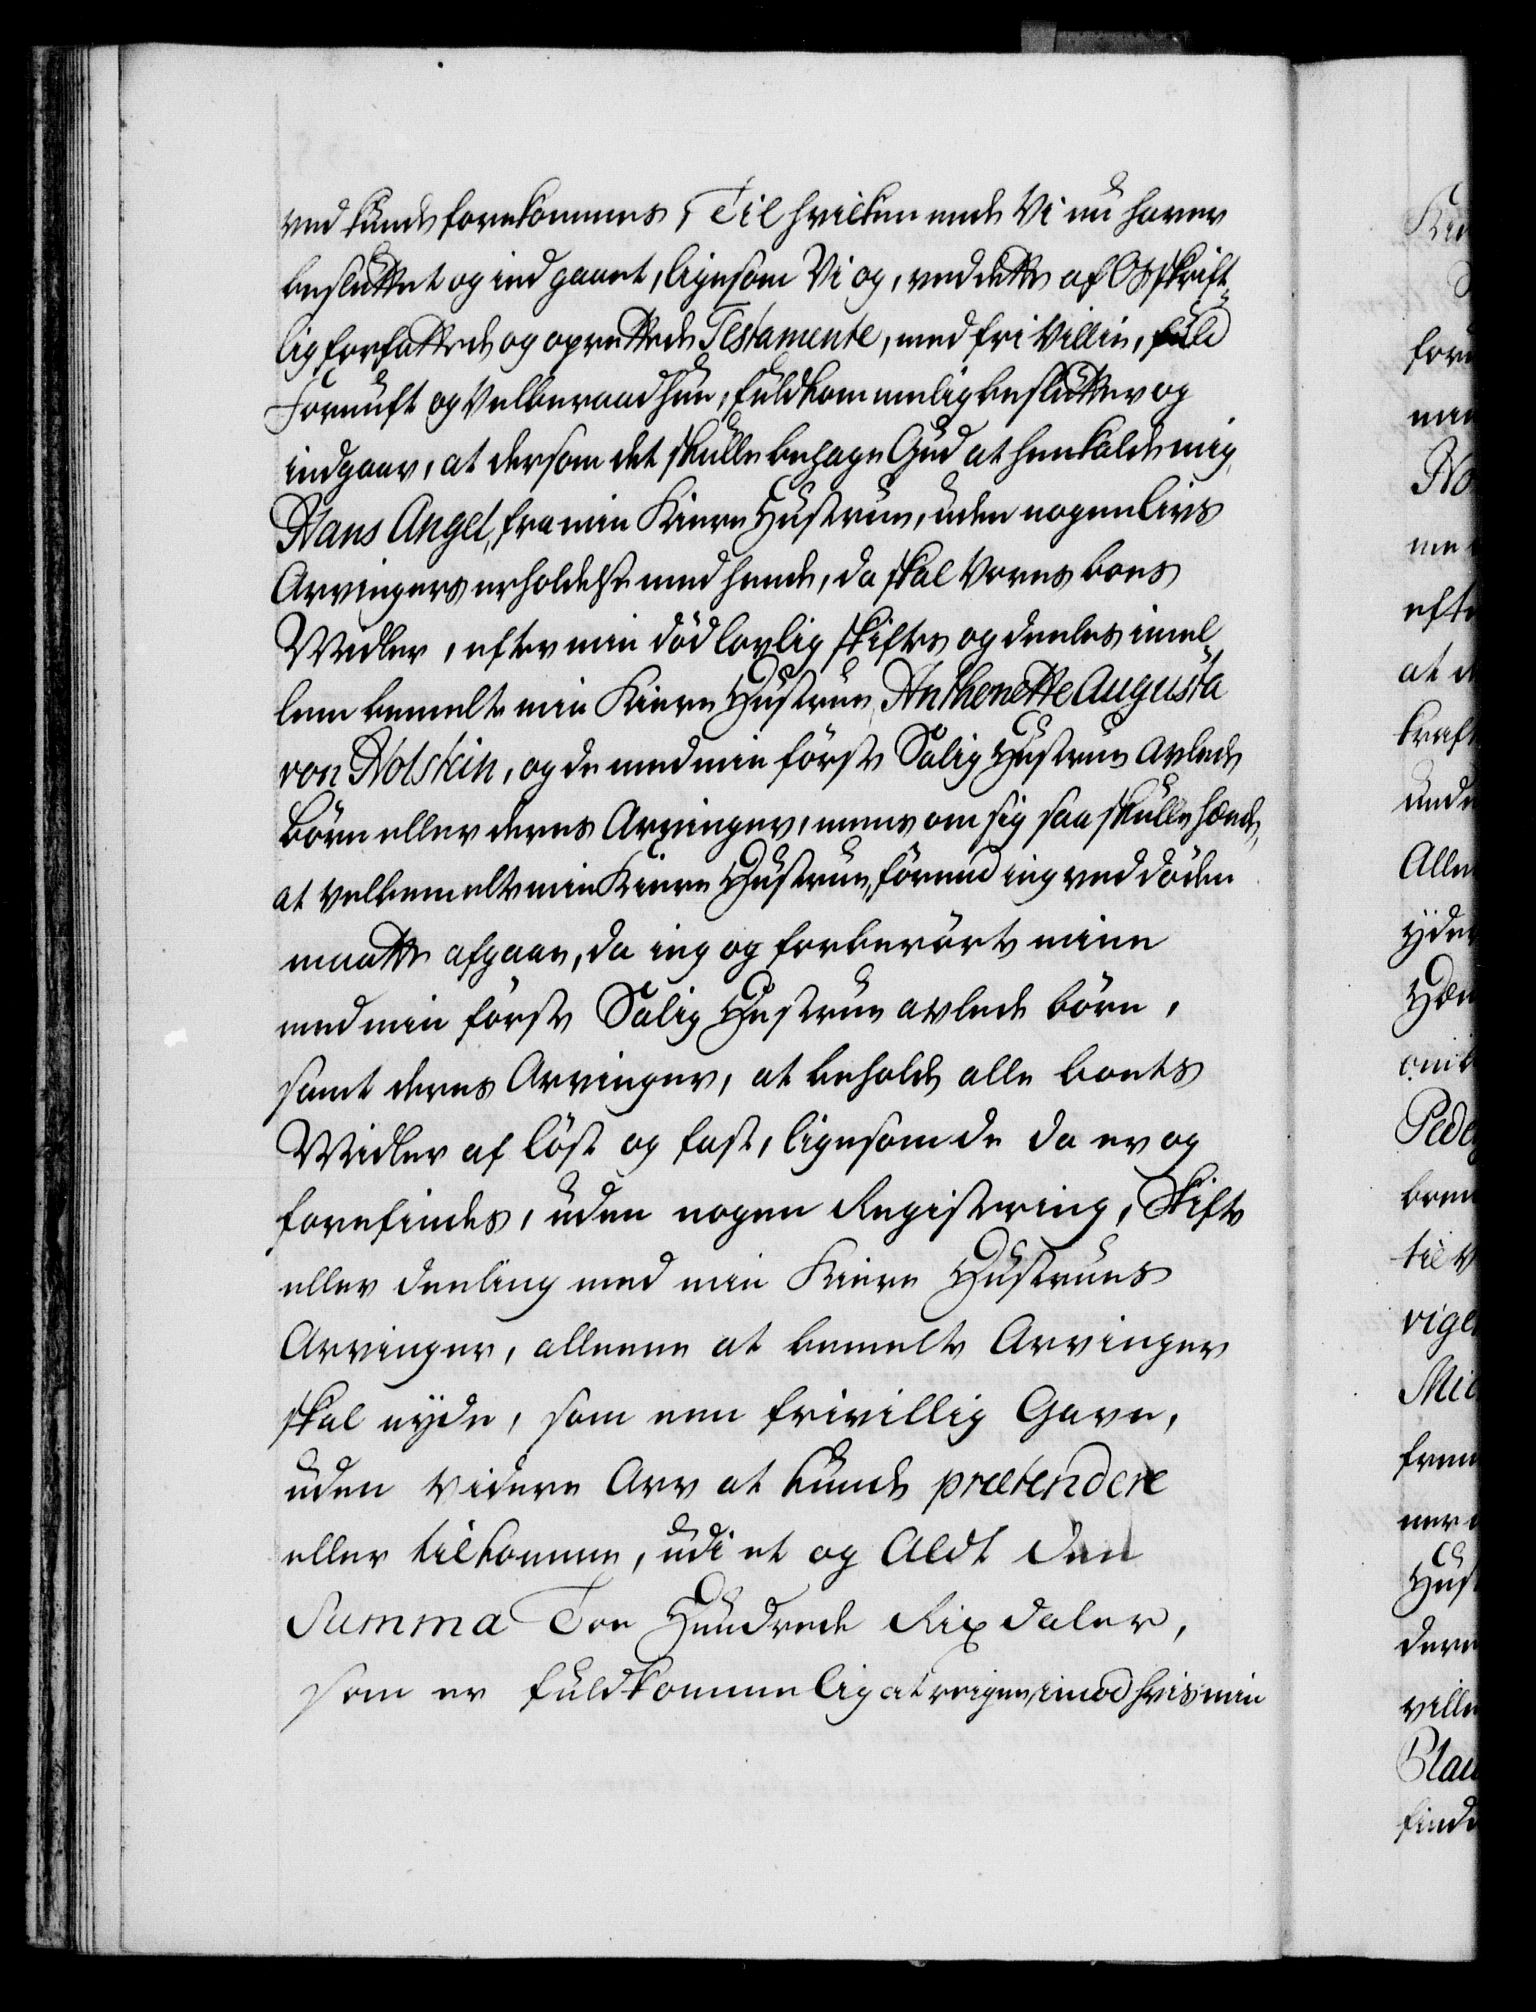 ved kunde forekommes, Til hvilken ende Vi nu haver
besluttet og ind gaaet, ligesom Vi og, ved dette af Os skrift-
lig forfattede og oprettede Testamente, med fri Villie, fuld
Fornuft og Velberaad hue, fuldkommelig beslutter og
indgaar, at dersom det skulle behage Gud at henkalde mig
Hans Angel, fra min Kiere Hustrue, uden nogen livs
Arvingers erholdelse med hende, da skal Vores boes
Midler, efter min död lovlig skiftes og deeles imel-
lem bemelte min Kiere Hustrue Anthonette Augusta
von Holstein, og de med min förste Salig Hustrue avlede
börn eller deres Arvinger, mens om sig saa skulle hænde,
at velbemelte min Kiere Hustrue, förend ieg ved döden
maatte afgaae, da ieg og forberörte mine
med min förste Salig Hustrue avlede börn,
samt deres Arvinger, at beholde alle boets
Midler af löst og fast, ligesom de da er og
forefindes, uden nogen Registering, Skifte
eller deeling med min Kiere Hustrues
Arvinger, alleene at bemelte Arvinger
skal nyde, som een frivillig Gave,
uden videre Arv at kunde prætendere
eller tilkomme, udi et og Aldt den
Summa Toe Hundrede Rixdaler,
som er fuldkommelig at reigne imod hvis min